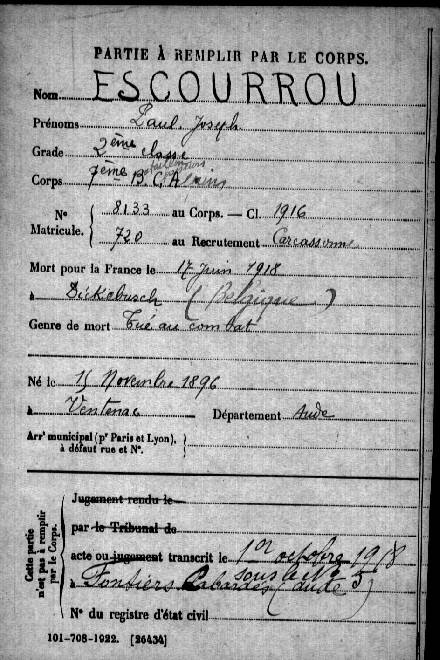 PARTIE À REMPLIR PAR LE CORPS.
Nom ESCOURROU
Prénoms Paul Joseph
Grade 2ème classe
Corps 7ème B. C. Alpins
Nº Matricule. 8133 au Corps. — Cl. 1916
720 au Recrutement Carcassonne
Mort pour la France le 17 Juin 1918
à Dickebusch (Belgique)
Genre de mort Tué au combat
Né le 15 Novembre 1896
à Ventenac Département Aude
Arrt municipal (pr Paris et Lyon), à défaut rue et Nº.
Cette partie n'est pas à remplir par le Corps.
Jugement rendu le
par le Tribunal de
acte ou jugement transcrit le 1er octobre 1918
sous le Nº 5
à Fontiers Cabardès (Aude)
Nº du registre d'état civil
101-708-1922. [26434]